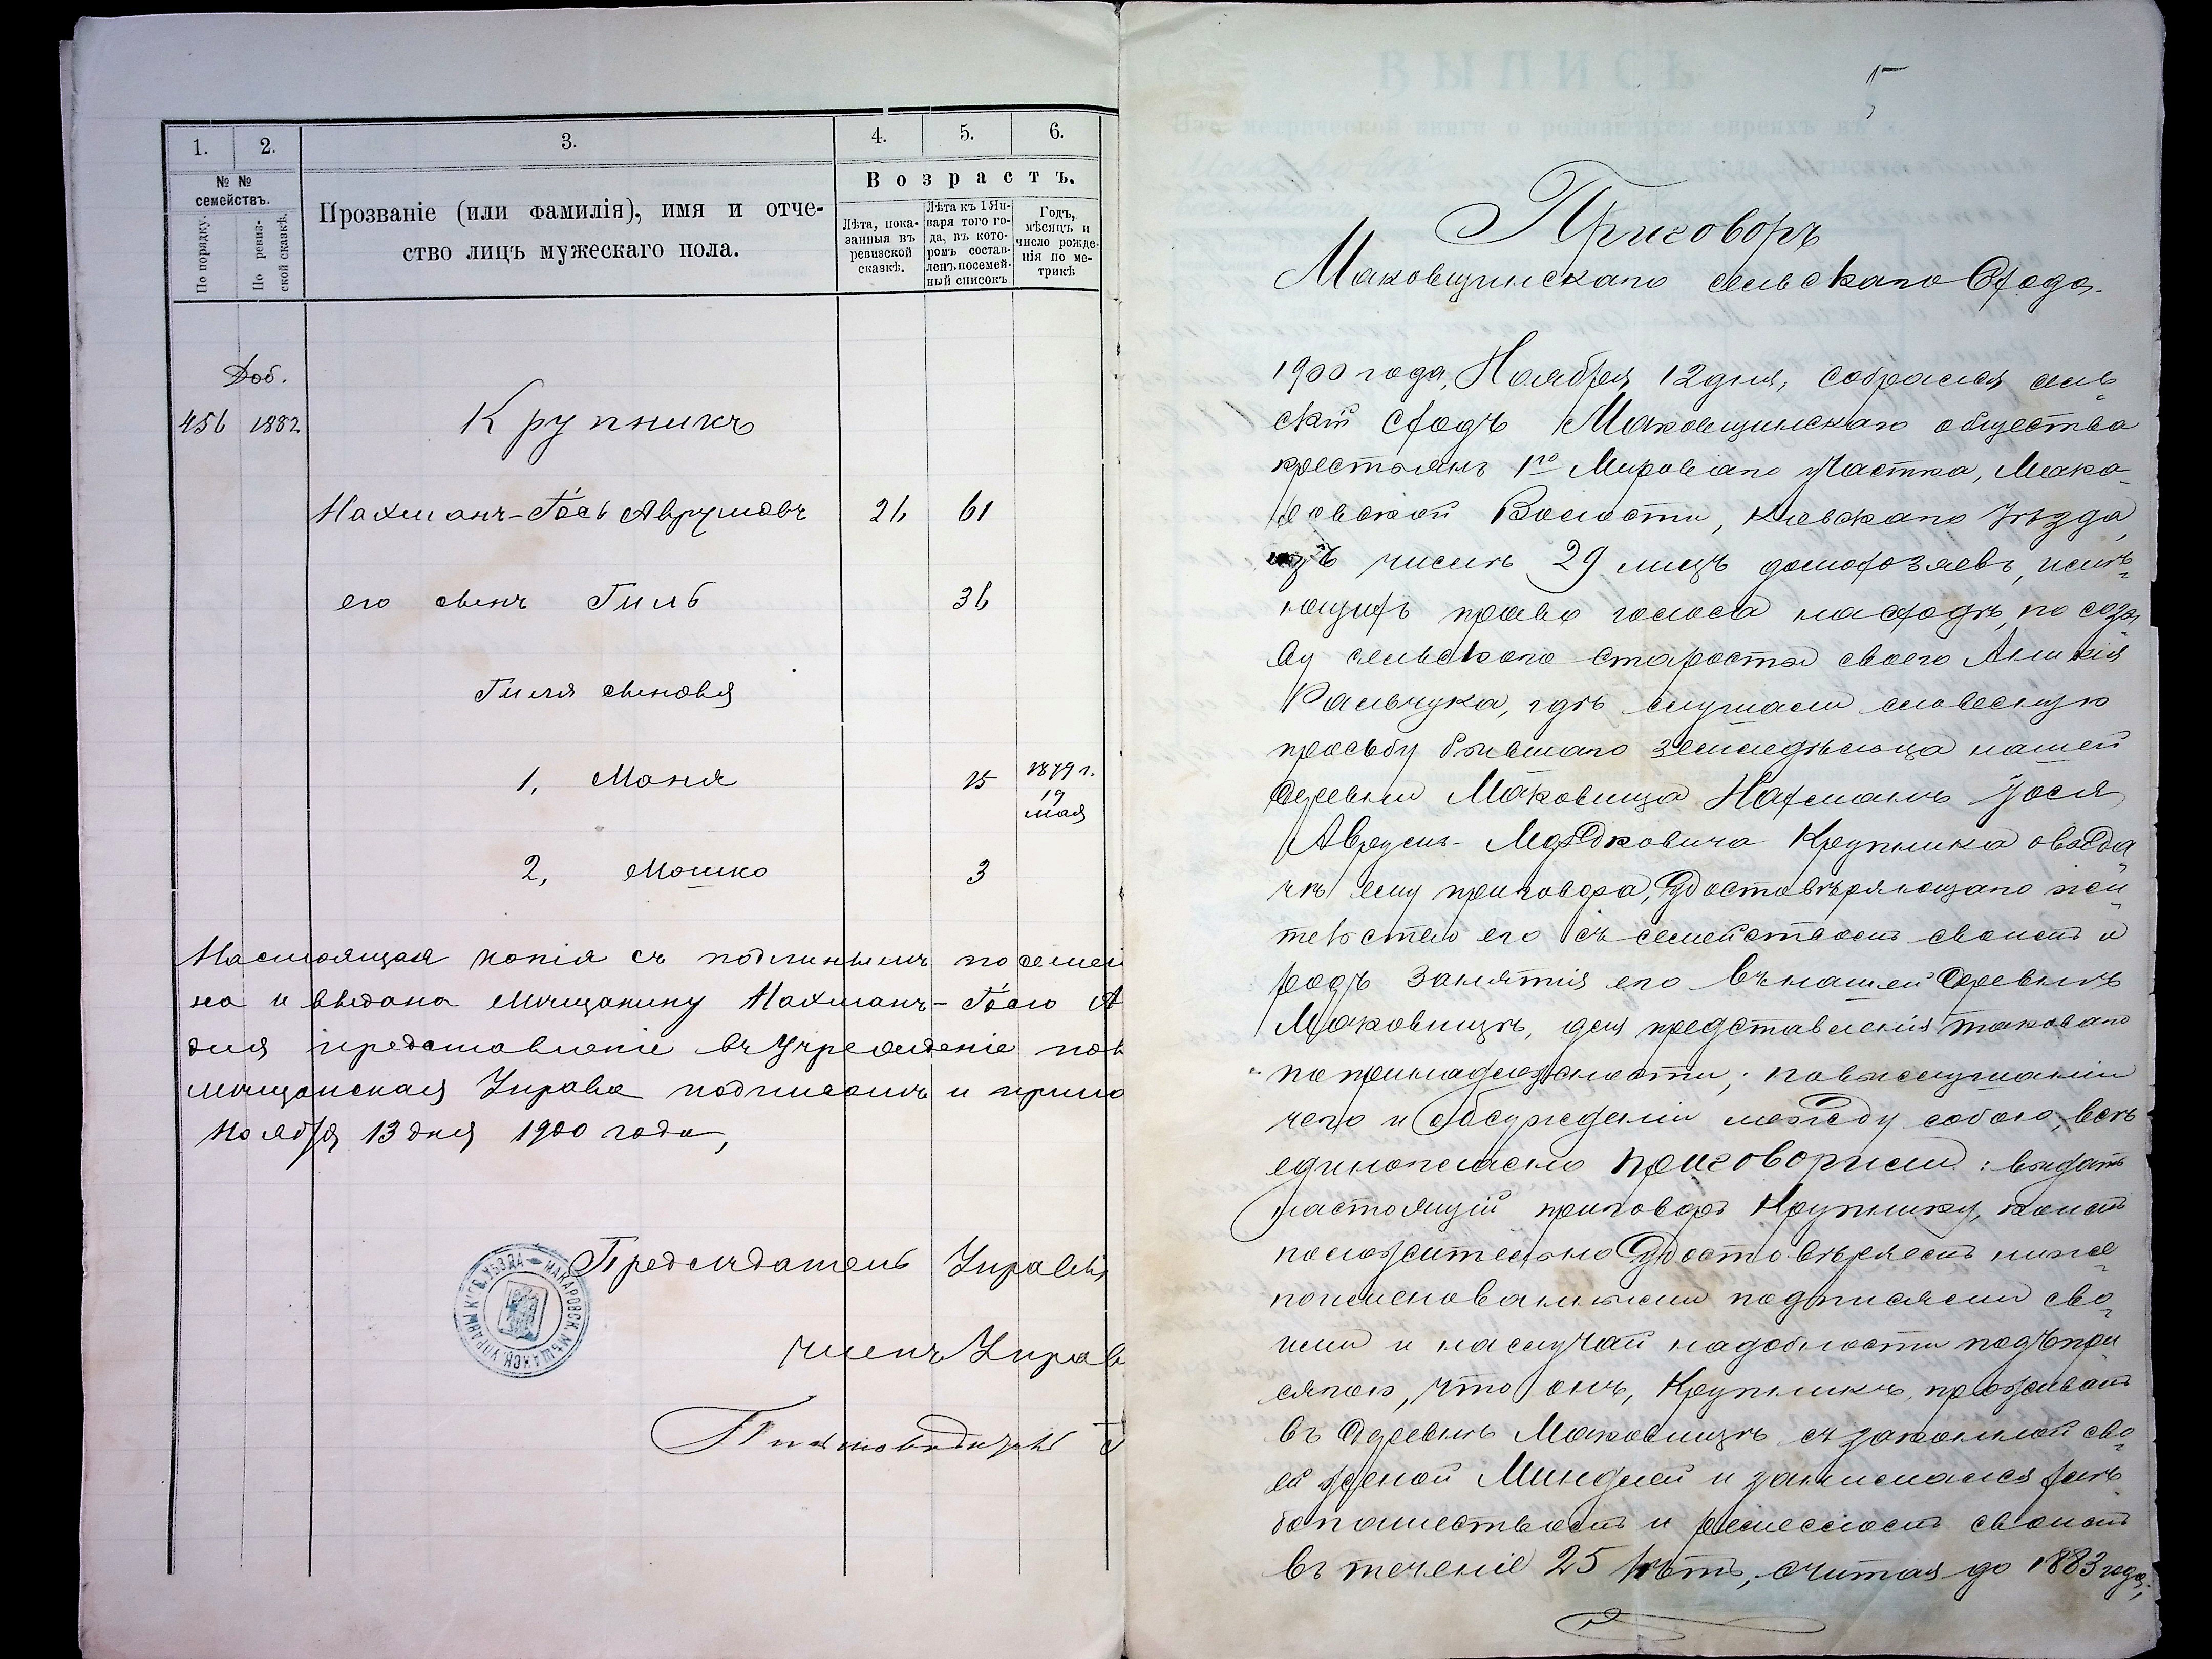 1.
2.
3.
4.
5.
6.
№ №
семействъ.
По порядку.
По ревиз-
ской сказкѣ.
Прозваніе (или фамилія), имя и отче-
ство лицъ мужескаго пола.
Возрастъ.
Лѣта, пока-
занныя въ
ревизской
сказкѣ.
Лѣта къ 1 Ян-
варя того го-
да, въ кото-
ромъ состав-
ленъ посемей-
ный списокъ
Годъ,
мѣсяцъ и
число рожде-
нія по ме-
трикѣ
Доб.
456 1882 Крупникъ
Нахманъ-Іось Аврумовъ 26 61
его сынъ Гиль 36
Гиля сыновья
1, Моня 15 1879 г. 19 мая
2, Мошко 3
Настоящая копія съ подлиннымъ посемей
на и выдана Мѣщанину Нахманъ-Іосю А
для представленія въ Учрежденіе пов
мѣщанская Управа подписомъ и прило
Ноября 13 дня 1900 года,
Предсѣдатель Управы
членъ Управ
Письмоводитель
МАКАРОВСК. МѢЩАНСК. УПРАВЫ КІЕВ. УѢЗДА
5
Приговоръ
Маковищинскаго сельскаго Схода.
1900 года, Ноября 12 дня, собрался сель
скій сходъ Маковищинскаго общества
крестьянъ 1го Мироваго участка, Мака-
ровской Волости, Кіевскаго Уѣзда,
изъ числа 29 лицъ домохозяевъ, имѣ-
ющихъ право голоса на сходѣ, по созы
ву сельского старосты своего
Ральчука, гдѣ слушали словесную
просьбу бывшаго земледѣльца нашей
деревни Маковища Нахманъ Іося
Аврумъ-Мордковича Крупника о выда
чѣ ему приговора, удостовѣряющаго жи-
тельство его съ семействомъ своимъ и
родъ занятія его въ нашей деревнѣ
Маковищѣ, для представленія таковаго
по принадлежности; по выслушаніи
чего и обсужденіи между собою, всѣ
единогласно приговорили: выдать
настоящій приговоръ Крупнику, коимъ
положительно удостовѣряемъ ниже-
поименованными подписями сво-
ими и на случай надобности подъ при
сягою, что онъ, Крупникъ, проживалъ
въ деревнѣ Маковищѣ съ законной сво-
ей женой Минцлей и занимался хлѣ
бопашествомъ и ремесломъ своимъ
въ теченіе 25 лѣтъ, считая до 1883 года;